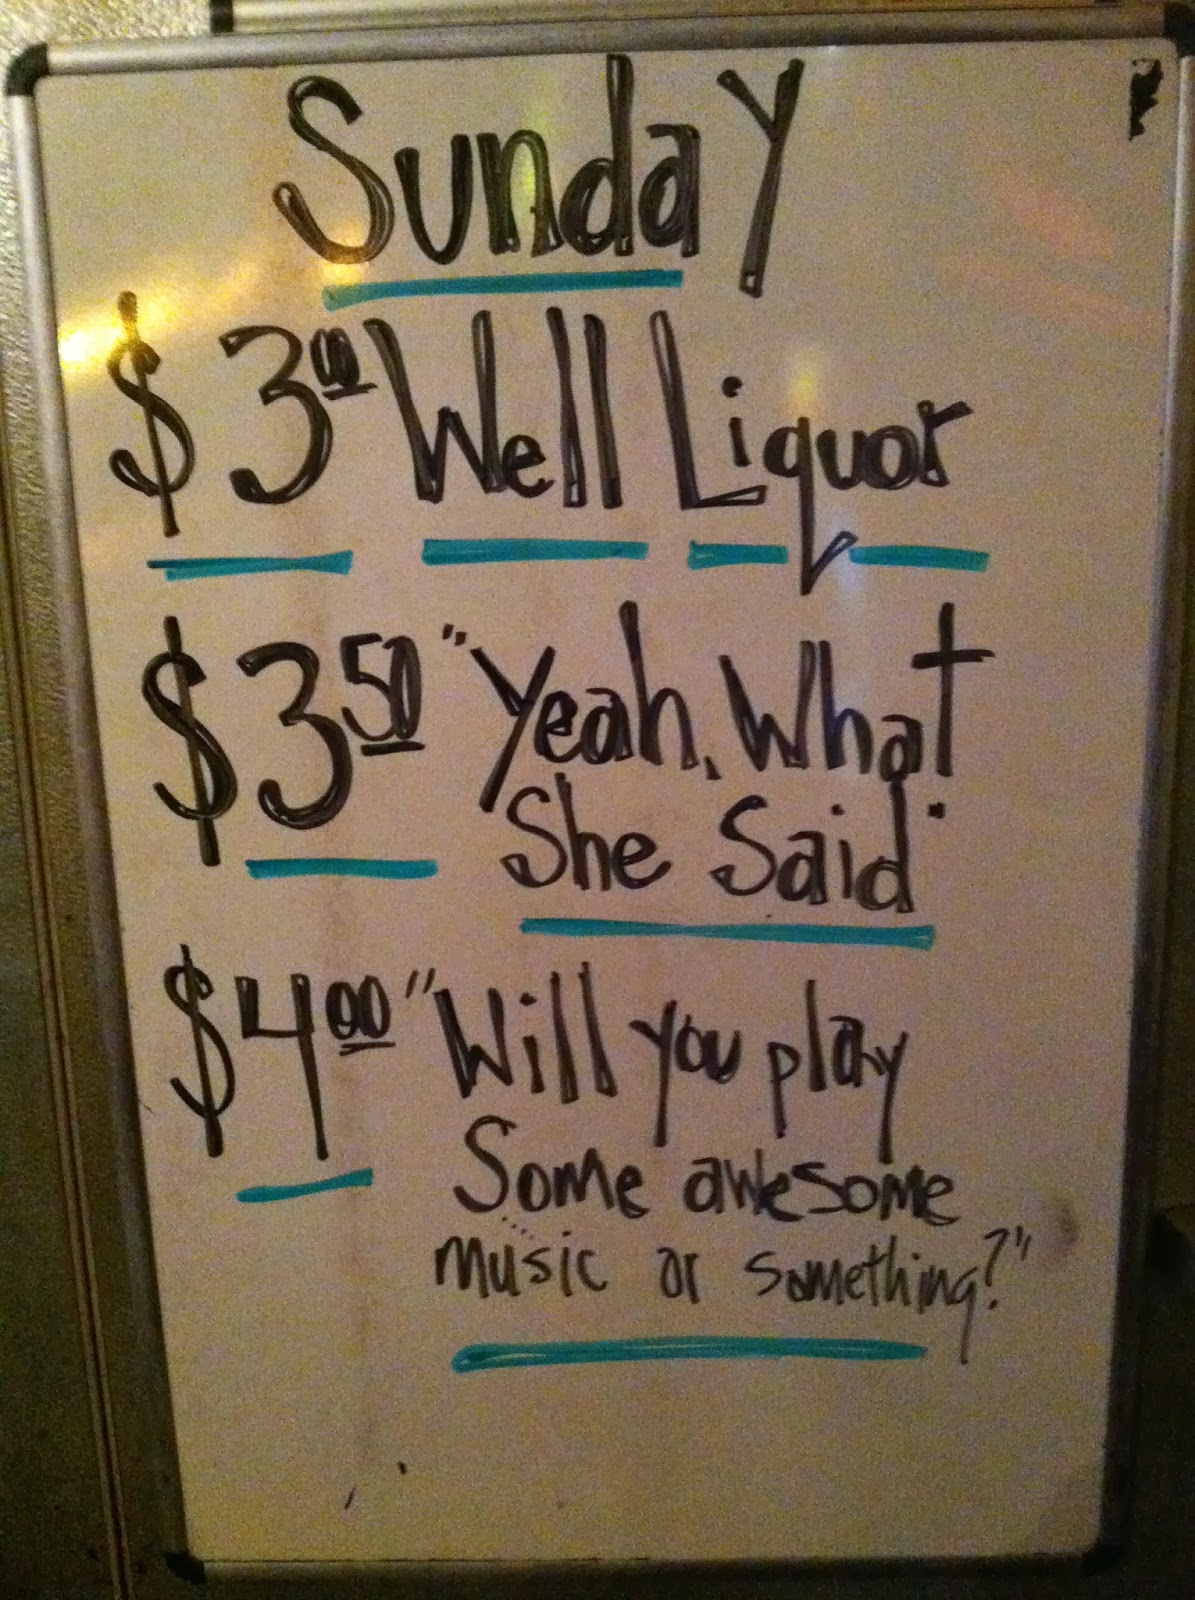 Sunday
$3.00 Well Liquor
$3.50 "Yeah, What
She Said"
$4.00 "Will you play
Some awesome
music or something?"